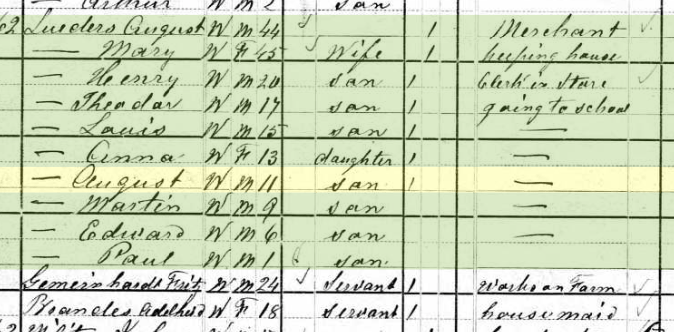 Arthur W M 2 son
62 Lueders August W M 44 1 Merchant
— Mary W F 45 Wife 1 keeping house
— Henry W M 20 son 1 Clerk in Store
— Theodor W M 17 son 1 going to school
— Louis W M 15 son 1 —
— Anna W F 13 daughter 1 —
— August W M 11 son 1 —
— Martin W M 9 son —
— Edward W M 6 son —
— Paul W M 1 son
Gemeinhardt Fritz W M 24 servant 1 Works on Farm
Brandes Adelheid W F 18 servant 1 house maid